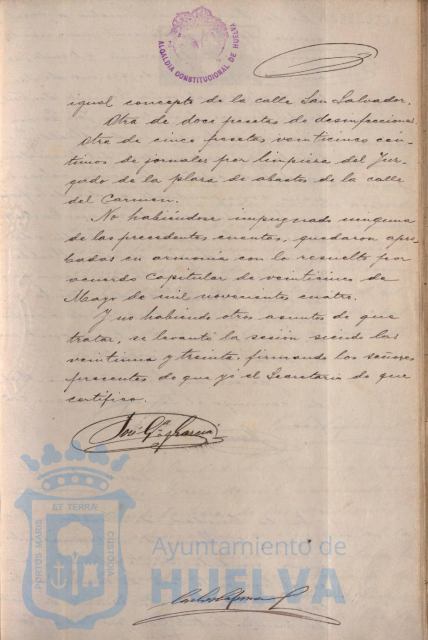 ALCALDIA CONSTITUCIONAL DE HUELVA
igual concepto de la calle San Salvador.
Otra de doce pesetas de desinfeccion
Otra de cinco pesetas veinticinco cén-
timos de jornales por limpieza del Juz-
gado de la plaza de abastos de la calle
del Carmen.
No habiéndose impugnado ninguna
de las precedentes cuentas, quedaron apro
badas en armonia con lo resuelto por
acuerdo Capitular de veinticinco de
Mayo de mil novecientos cuatro.
Y no habiendo otros asuntos de que
tratar, se levantó la sesión siendo las
veintiuna y treinta, firmando los señores
presentes de que yo el Secretario de que
certifico.
José Gª García
ET TERRA
PORTUS MARIS
CUSTODIA
Ayuntamiento de
HUELVA